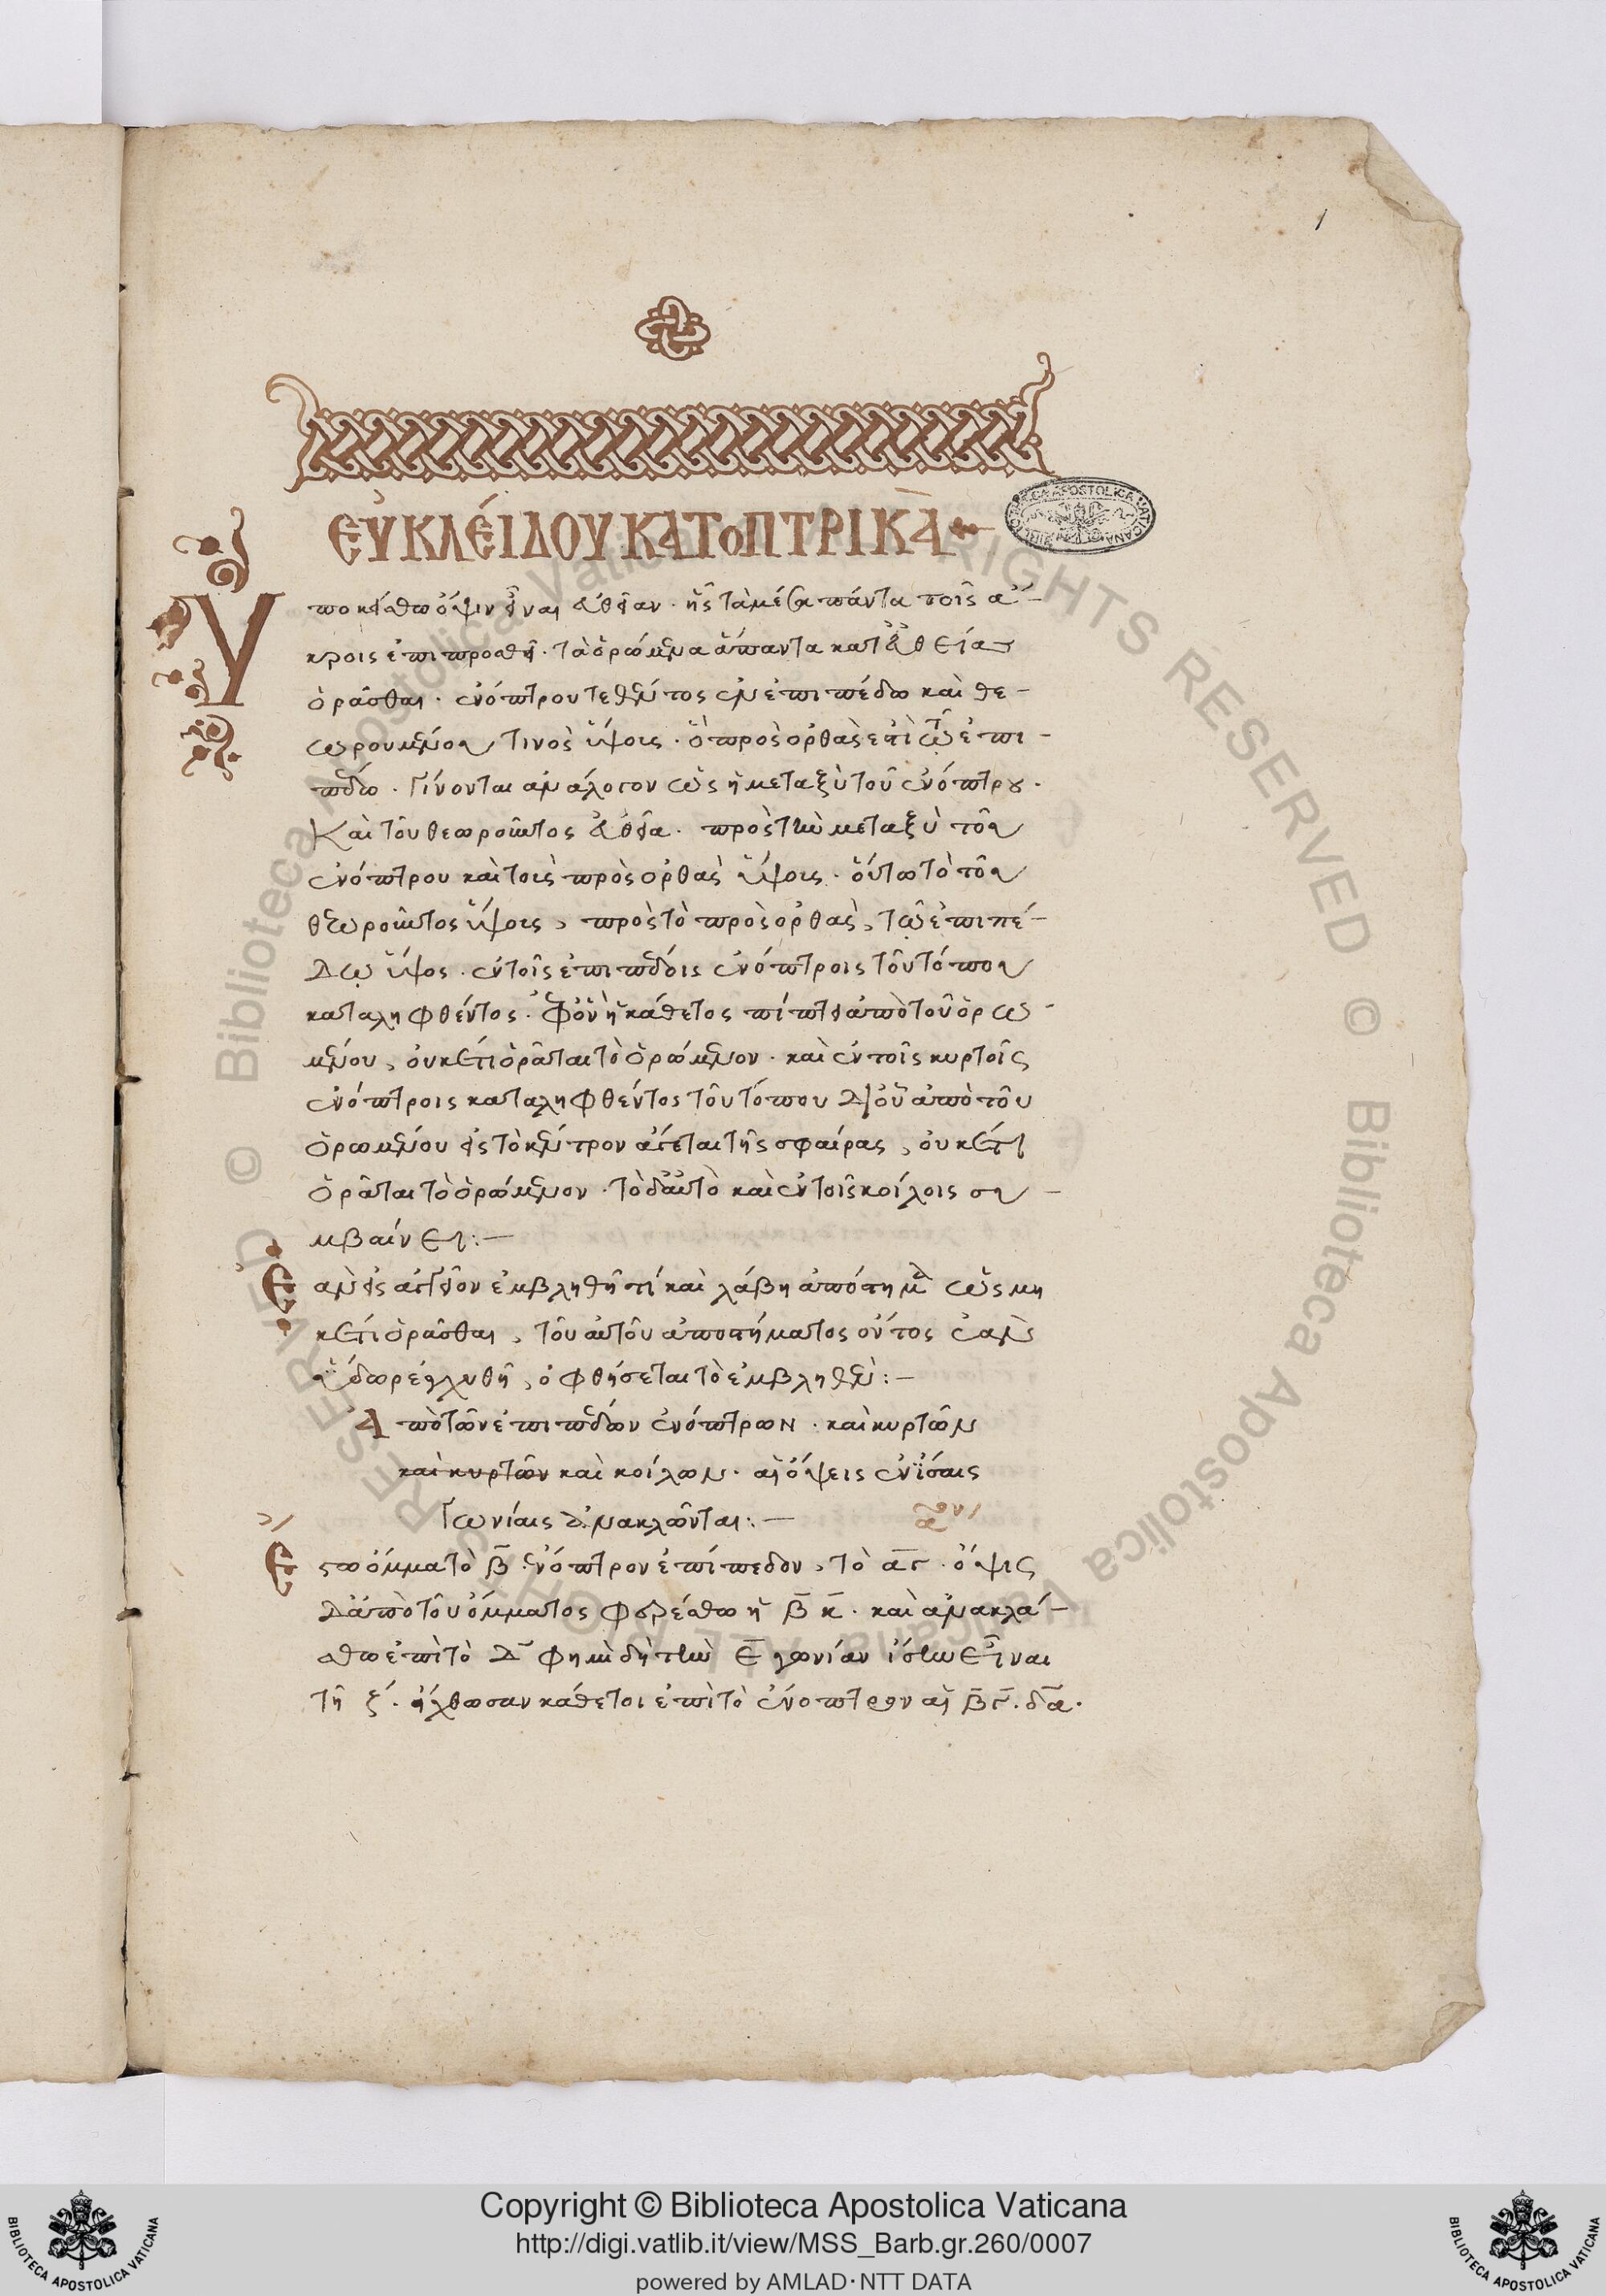 1
ΕΥ̓ΚΛΕΊΔΟΥ ΚΑΤΟΠΤΡΙΚᾺ
Ὑποκείσθω ὄψιν εἶναι εὐθεῖαν· ἧς τὰ μέσα πάντα τοῖς ἄ-
κροις ἐπιπροσθεῖ· τὰ ὁρώμενα ἅπαντα κατ' εὐθείας
ὁρᾶσθαι· ἐνόπτρου τεθέντος ἐν ἐπιπέδω καὶ θε-
ωρουμένου τινὸς ὕψους· ὃ πρὸς ὀρθάς ἐστὶ τῷ ἐπι-
πέδω· γίνονται ἀνάλογον ὡς ἡ μεταξὺ τοῦ ἐνόπτρου·
Καὶ τοῦ θεωροῦντος εὐθεῖα· πρὸς τὴν μεταξὺ τοῦ
ἐνόπτρου καὶ τοῦ πρὸς ὀρθὰς ὕψους· οὕτω τὸ τοῦ
θεωροῦντος ὕψους, πρὸς τὸ πρὸς ὀρθὰς, τῷ ἐπιπέ-
δῳ ὕψος· ἐν τοῖς ἐπιπέδοις ἐνόπτροις τοῦ τόπου
καταληφθέντος· ἐφ' ὃν ἡ κάθετος πίπτει ἀπὸ τοῦ ὁρω-
μένου, οὐκέτι ὁρᾶται τὸ ὁρώμενον· καὶ ἐν τοῖς κυρτοῖς
ἐνόπτροις καταληφθέντος τοῦ τόπου δι' οὗ ἀπὸ τοῦ
ὁρωμένου εἰς τὸ κέντρον ἄγεται τῆς σφαίρας, οὐκέτι
ὁρᾶται τὸ ὁρώμενον· τὸ δ' αὐτὸ καὶ ἐν τοῖς κοίλοις συ-
μβαίνει:—
Ἐὰν εἰς ἀγγεῖον ἐμβληθῆ τί καὶ λάβη ἀπόστημα ὡς μη
κέτι ὁρᾶσθαι, τοῦ αὐτοῦ ἀποστήματος ὄντος ἐὰν
ὕδωρ ἐγχυθῆ, ὀφθήσεται τὸ ἐμβληθὲν:—
Ἀπὸ τῶν ἐπιπέδων ἐνόπτρων· καὶ κυρτῶν
καὶ κυρτῶν καὶ κοίλων· αἱ ὄψεις ἐν ἴσαις
γωνίαις ἀνακλῶνται:—
Ἔστω ὄμμα τὸ β̅· ἔνόπτρον ἐπίπεδον, τὸ α̅γ̅· ὄψις
δ' ἀπὸ τοῦ ὄμματος φερέσθω ἡ β̅κ̅· καὶ ἀνακλά-
σθω ἐπὶ τὸ δ̅ φημὶ δὴ τὴν ε̅ γωνίαν ἴσην εἶναι
τῆ ζ· ἤχθωσαν κάθετοι ἐπὶ τὸ ἔνοπτρον αἱ β̅γ̅· δ̅α̅·
Copyright © Biblioteca Apostolica Vaticana
http://digi.vatlib.it/view/MSS_Barb.gr.260/0007
powered by AMLAD·NTT DATA